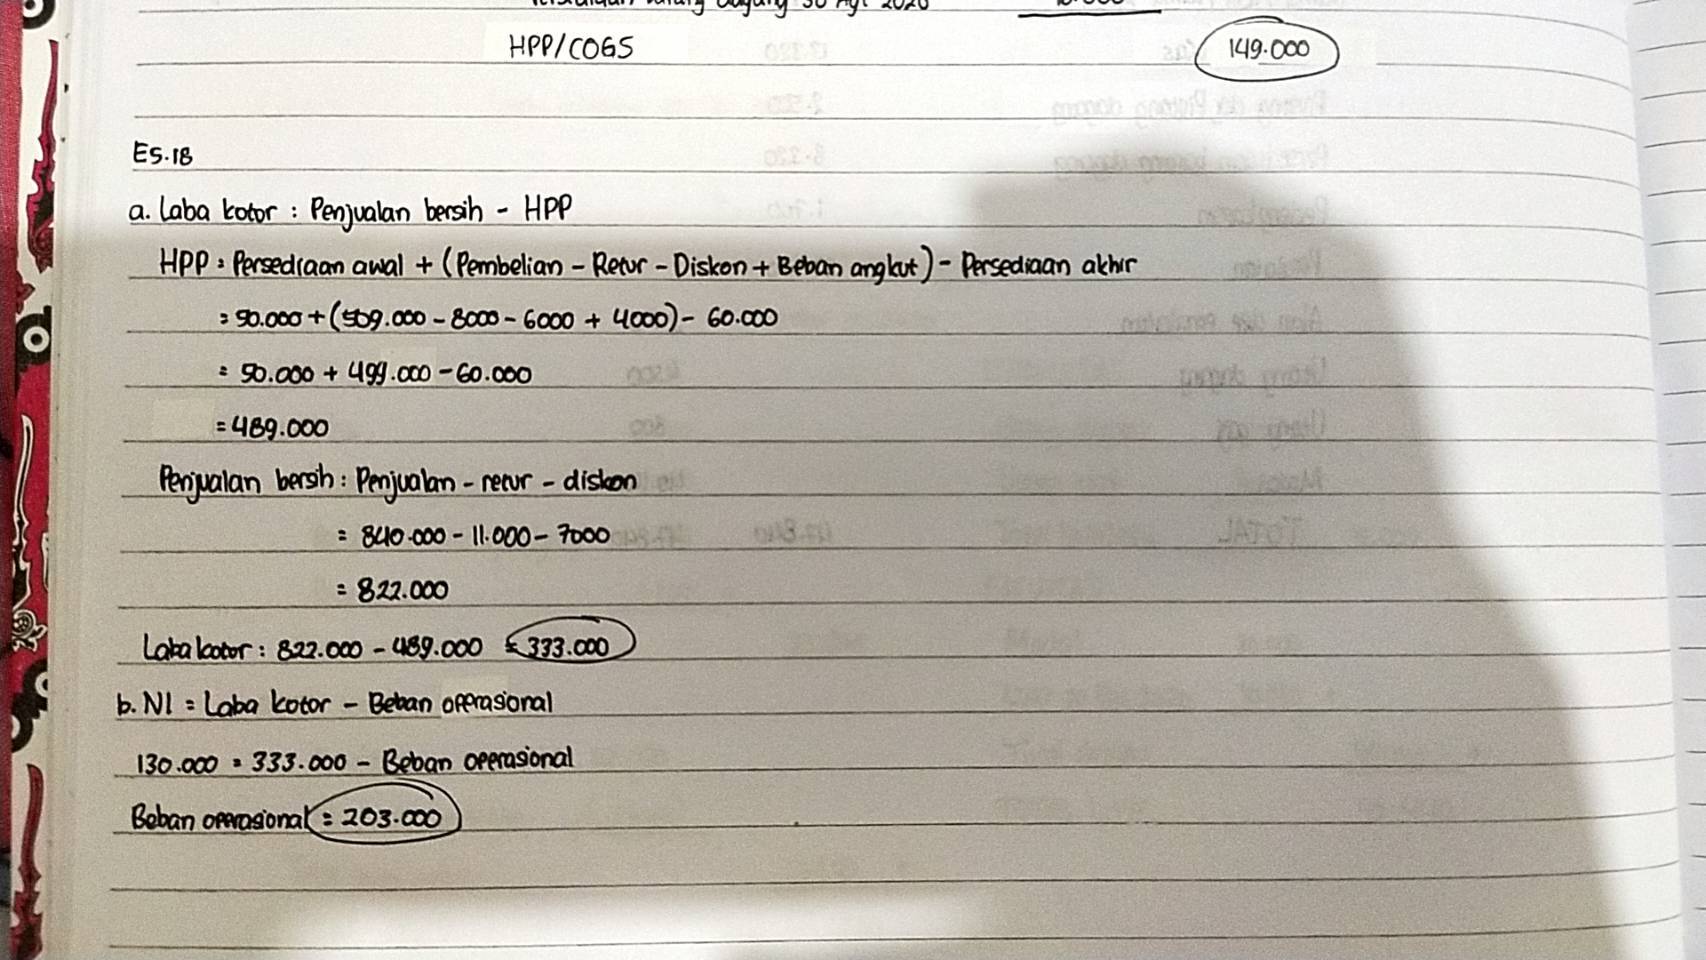 HPP/COGS 149.000
E5.18
a. Laba kotor : Penjualan bersih - HPP
HPP : Persediaan awal + (Pembelian - Retur - Diskon + Beban angkut) - Persediaan akhir
= 50.000 + (509.000 - 8000 - 6000 + 4000) - 60.000
= 50.000 + 499.000 - 60.000
= 489.000
Penjualan bersih : Penjualan - retur - diskon
= 840.000 - 11.000 - 7000
= 822.000
Laba kotor : 822.000 - 489.000 = 333.000
b. NI = Laba kotor - Beban operasional
130.000 = 333.000 - Beban operasional
Beban operasional = 203.000